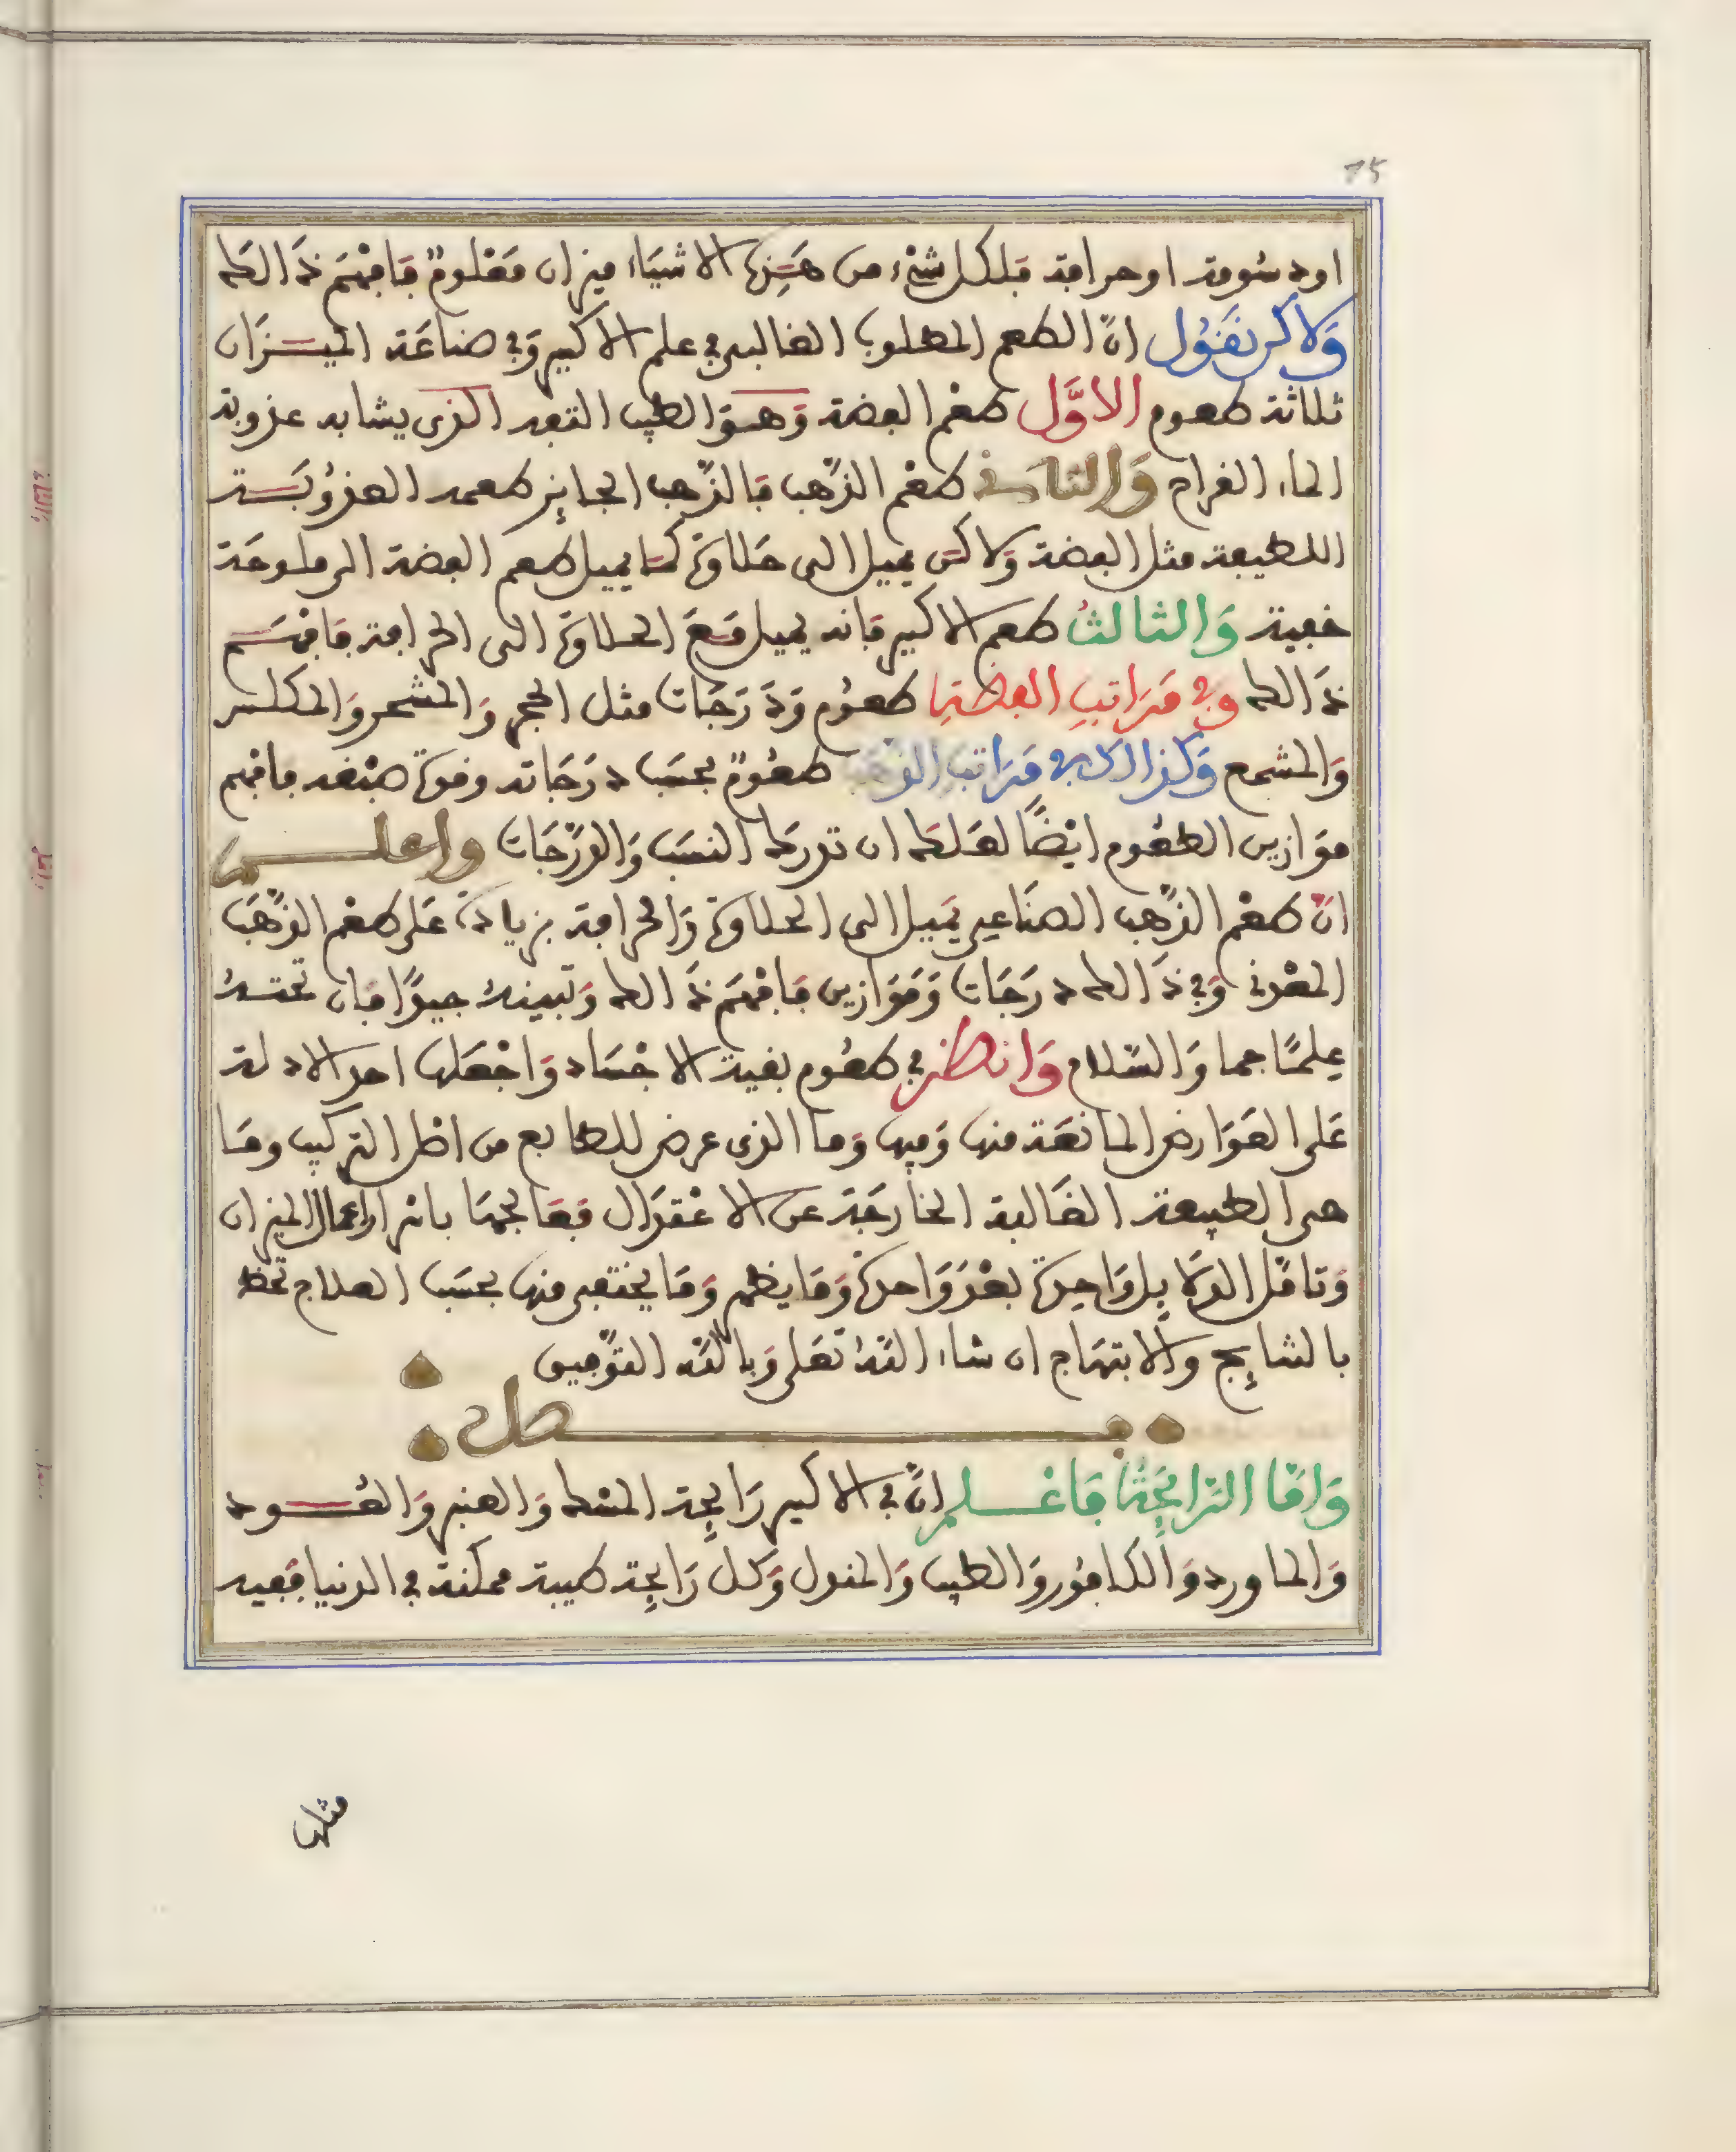 75
او دسومة او حرافة فلكل شيء من هَذِهِ الاشيَاء ميزان مَعْلومٌ فَافْهَم ذَالك
وَلاكن نَقُول انّ الطعم المطلوب الغالب في علم الاكسير وَفي صناعَة الميـزَان
ثلاثة طعوم الاوَّل طعْم الفضة وَهـوَ الطيب التفه الذى يشابه عذوبة
الماء القراح وَالثانى طعْم الذّهب فَالذّهب الجايز طعمه العذوبَـة
اللطيفة مثل الفضة وَلاكن يميل الى حَلاوَة كمَا يميل طعم الفضة الى ملوحَة
خفية وَالثالث طعم الاكسير فَانه يميل مَعَ الحلاوَة الى الحرافة فَافهَـم
ذَالك وَفي مَرَاتبِ الفضَّةِ طعُوم وَدَرَجَات مثل الحجر وَالمشحر وَالمكلس
وَالمشمع وَكذالك في مَرَاتبِ الذهَب طعُومٌ بحسَب دَرَجَاته وقوة صبْغه فافهم
مَوَازين الطعُوم ايْضًا لعَلك ان تدرك النسَب وَالدّرَجَات واعلـــم
انّ طعْم الذّهب الصنَاعِى يَميل الى الحلاوَة وَالحرافة بزيادَة عَلى طعْم الذّهَب
المعْدنى وَفي ذَالك دَرَجَات وَمَوَازين فَافْهَم ذَالك وَتبينهُ جيدًا فَان تحتـهُ
عِلمًا جما وَالسّلام وَانظر في طعُوم بقية الاجْسَاد وَاجْعَلها احد الادلة
عَلى العَوَارض المانعَة منها وَفيها وَما الذى عرض للطبايع من اصل التركيب ومَا
هى الطبيعة الغَالبة الخارجَة عن الاعْتدَال فَعَالجهَا باثر اعمال الميزان
وَتامّل الدلايِل وَاحِدَة بعْدَ وَاحدة وَمَا يظهر وَمَا يختفى منها بحسَب العلاج تحظ
بالنتايِج وَالابتهَاج ان شاء اللّه تعَلى وَباللّه التوْفيق
فـــــــــصل
وَامَّا الرايحَةُ فَاعْـلم انّ في الاكسير رَايِحة المسْك وَالعنبر وَالعُـود
وَالماورد وَالكافُور وَالطيب وَالمندل وَكل رَايِحة طيبة ممكنة في الدنيا فَفيه
مثلها